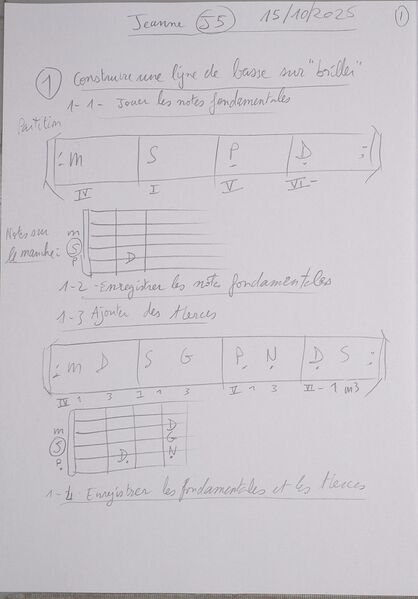 Jeanne J5 15/10/2025 1
1 Construire une ligne de basse sur "briller"
1-1- Jouer les notes fondamentales
Partition
: m S P D :
IV I V VI-
Notes sur
le manche:
m
S
P D
1-2 - Enregistrer les notes fondamentales
1-3 Ajouter des tierces
: m D S G P N D S :
IV 1 3 I 1 3 V 1 3 VI- 1 m3
m D
S G
P D N
1-4. Enregistrer les fondamentales et les tierces